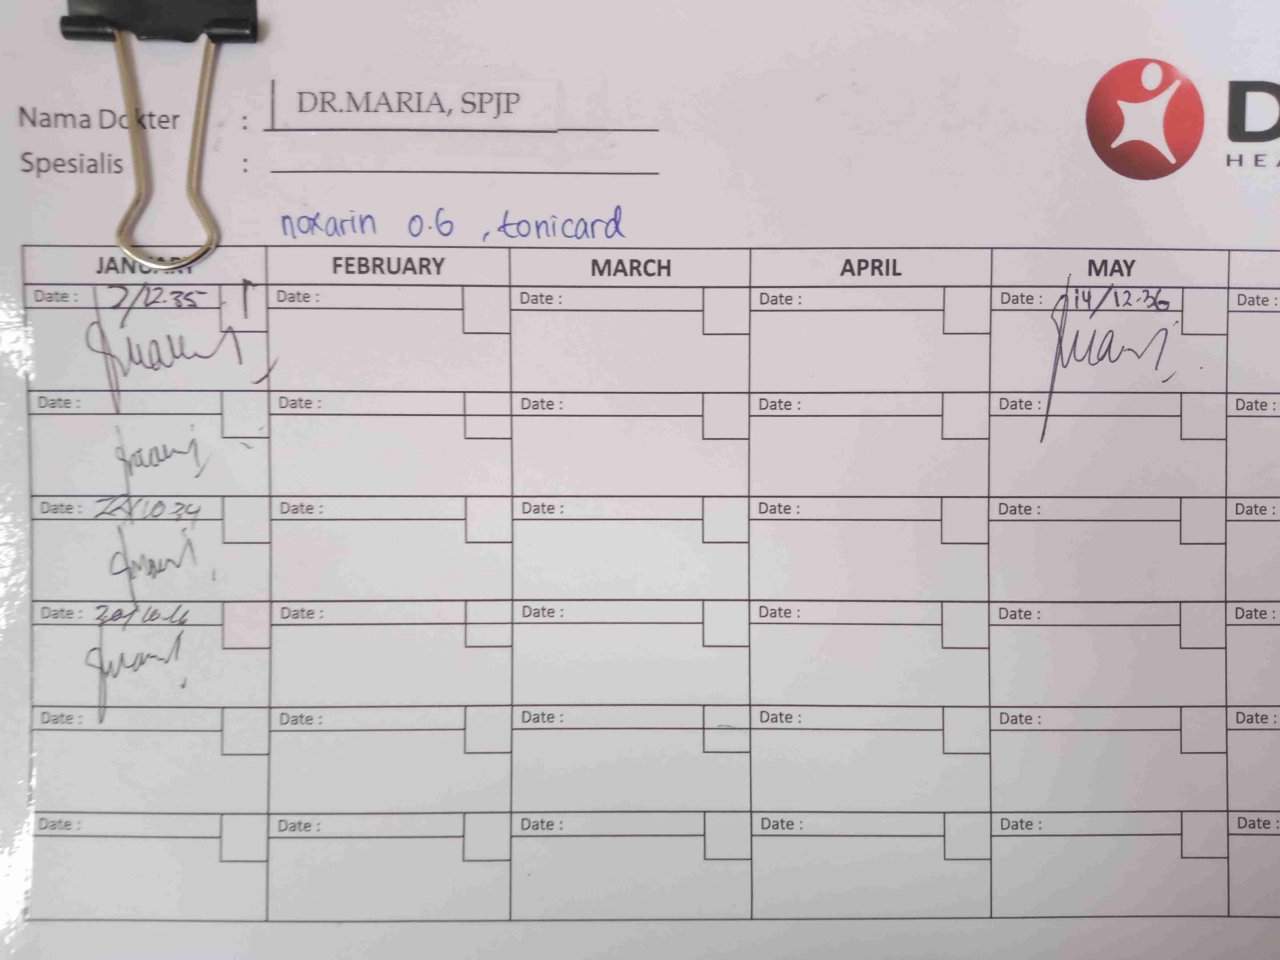 Nama Dokter : DR.MARIA, SPJP
Spesialis :
D
HEA
noxarin 0.6 , tonicard
JANUARY FEBRUARY MARCH APRIL MAY
Date : 7/12.35 Date : Date : Date : Date : 14/12.36 Date :
Date : Date : Date : Date : Date : Date :
Date : Date : Date : Date : Date : Date :
Date : Date : Date : Date : Date : Date :
Date : Date : Date : Date : Date : Date :
Date : Date : Date : Date : Date : Date :